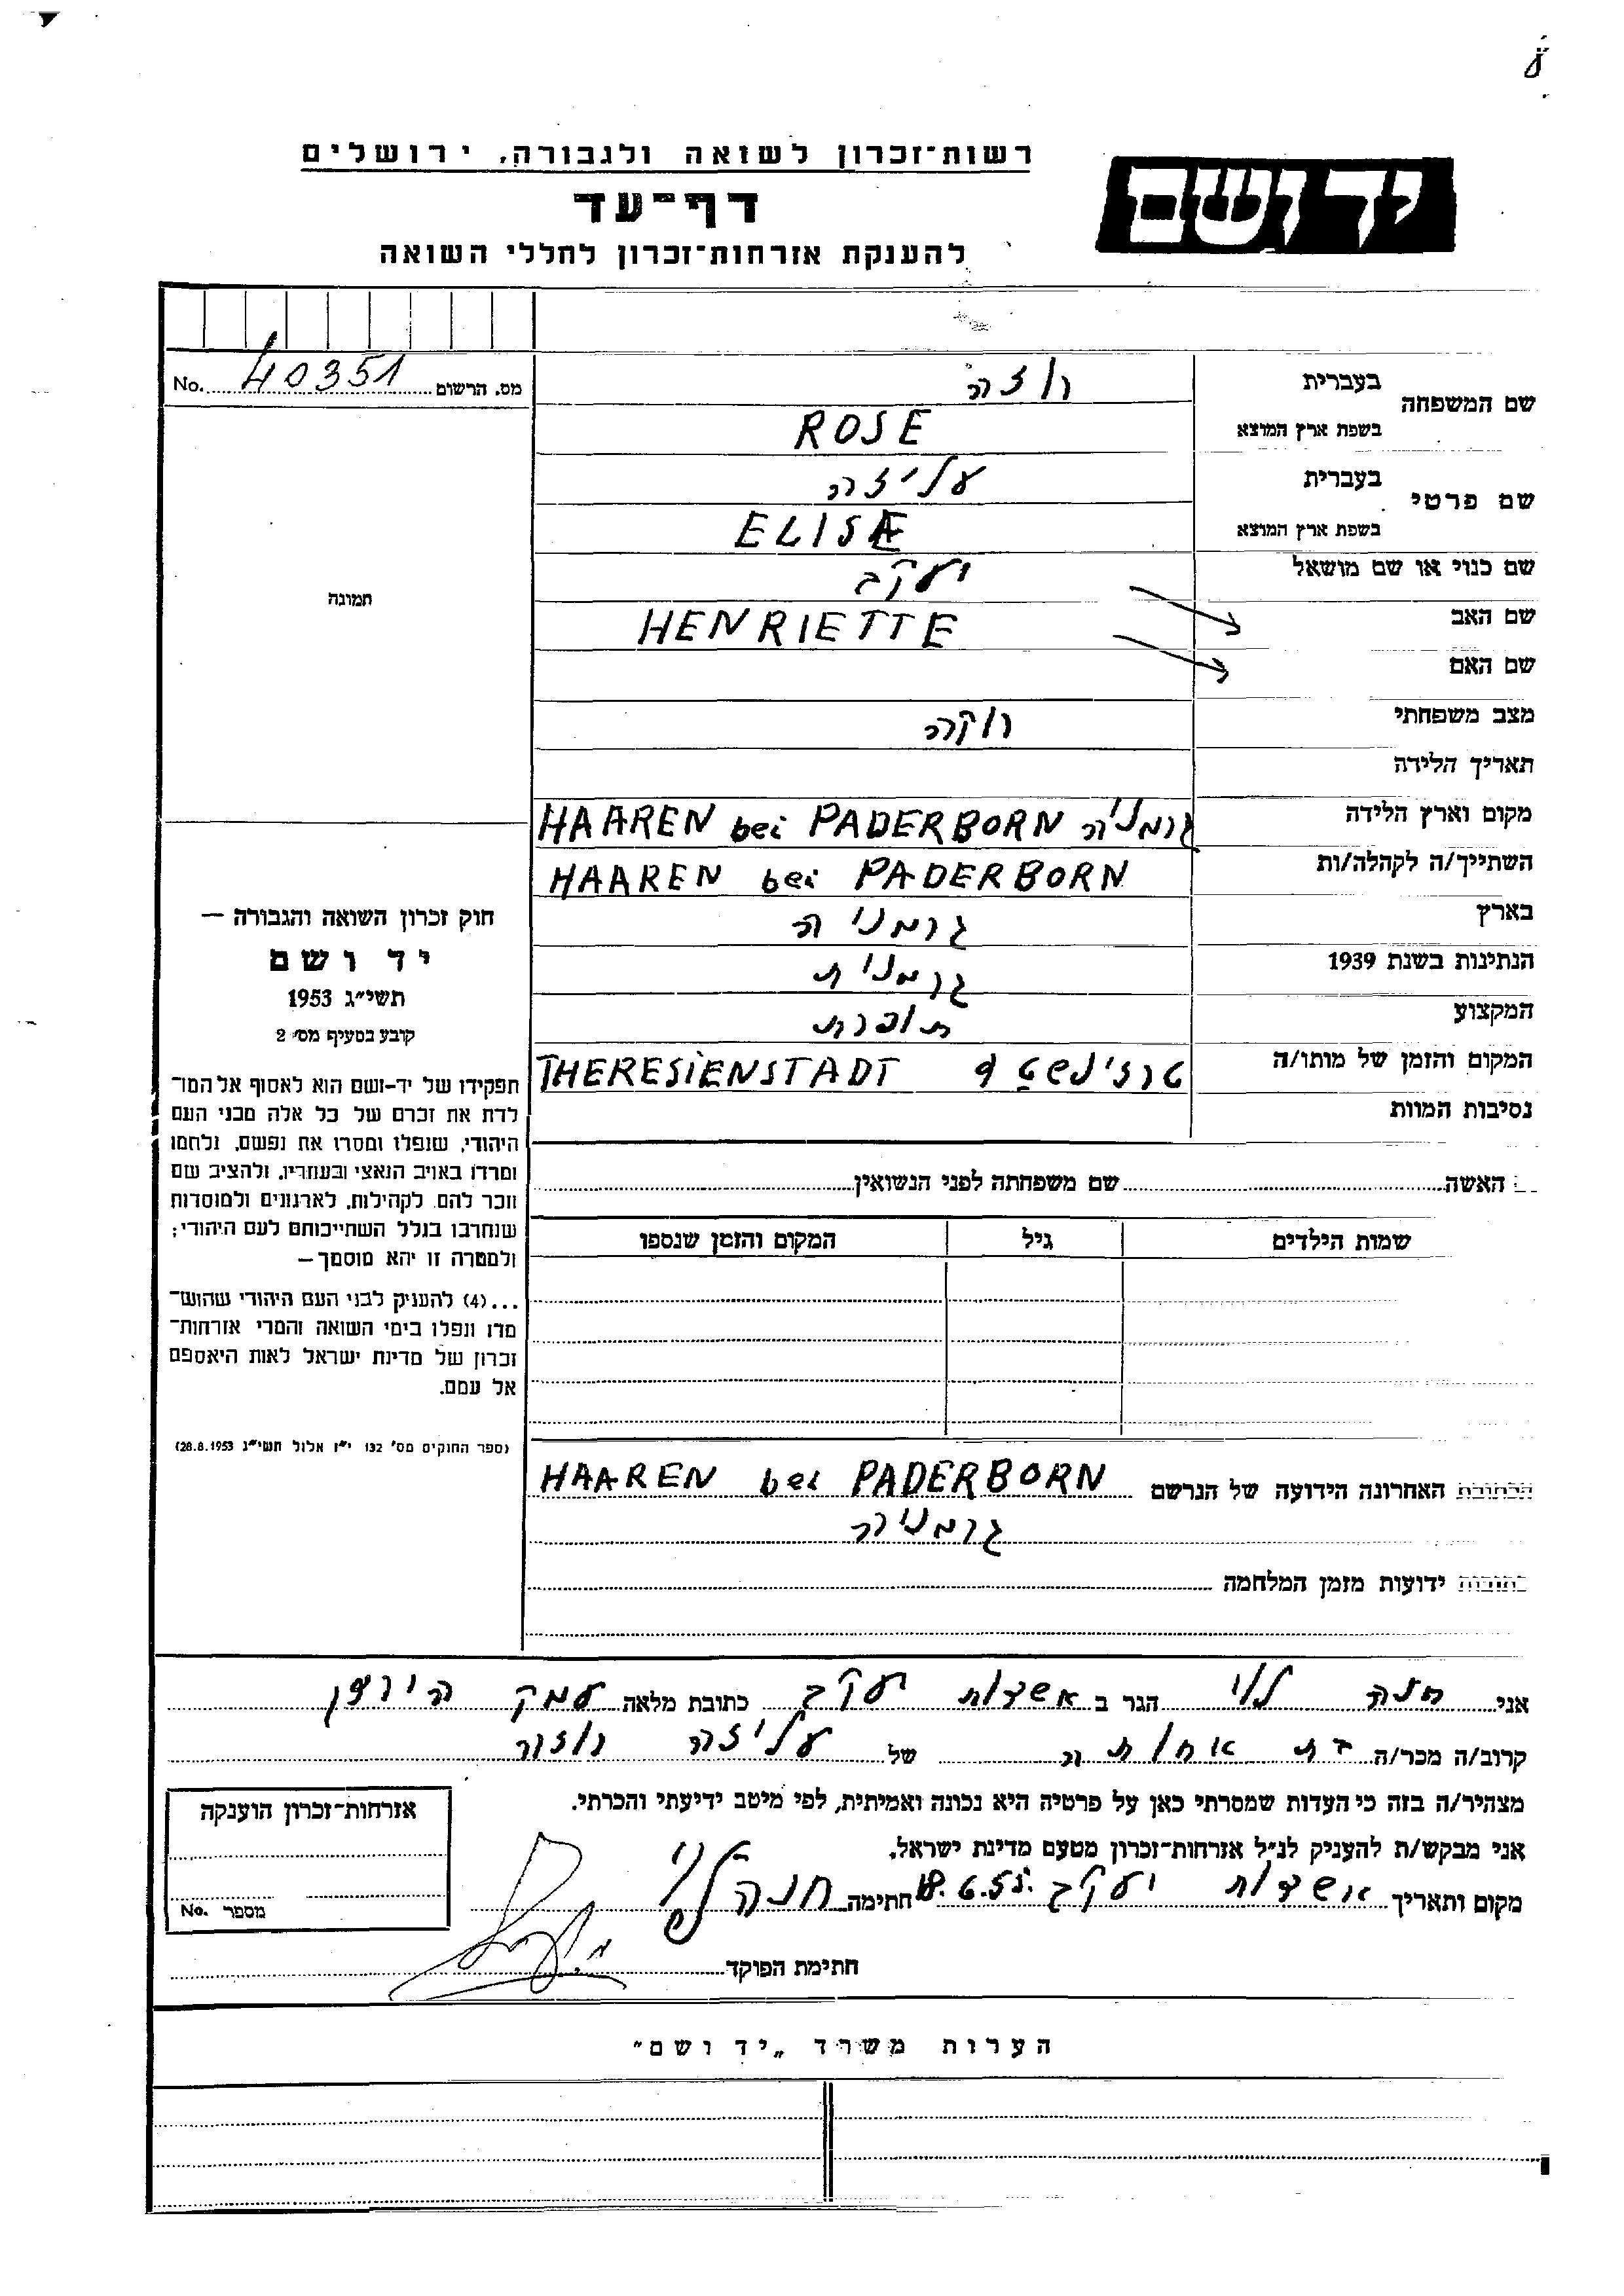 רשות־זכרון לשואה ולגבורה, ירושלים
יד ושם
דף־עד
להענקת אזרחות־זכרון לחללי השואה
מס. הרשום 40351 No.
שם המשפחה
בעברית רוזה
בשפת ארץ המוצא ROSE
שם פרטי
בעברית עליזה
בשפת ארץ המוצא ELISE
שם כנוי או שם מושאל יעקב
שם האב HENRIETTE
שם האם
מצב משפחתי רוקה
תאריך הלידה
מקום וארץ הלידה גרמניה HAAREN bei PADERBORN
השתייך/ה לקהלה/ות HAAREN bei PADERBORN
בארץ גרמניה
הנתינות בשנת 1939 גרמנית
המקצוע תופרת
המקום והזמן של מותו/ה THERESIENSTADT
נסיבות המוות
תמונה
חוק זכרון השואה והגבורה —
יד ושם
תשי״ג 1953
קובע בסעיף מס׳ 2
תפקידו של יד־ושם הוא לאסוף אל המו־
לדת את זכרם של כל אלה מבני העם
היהודי, שנפלו ומסרו את נפשם, נלחמו
ומרדו באויב הנאצי ובעוזריו, ולהציב שם
וזכר להם, לקהילות, לארגונים ולמוסדות
שנחרבו בגלל השתייכותם לעם היהודי;
ולמטרה זו יהא מוסמך—
...(4) להעניק לבני העם היהודי שהוש־
מדו ונפלו בימי השואה והמרי אזרחות־
זכרון של מדינת ישראל לאות היאספם
אל עמם.
(ספר החוקים מס׳ 132 י״ז אלול תשי״ג 28.8.1953)
האשה שם משפחתה לפני הנשואין
שמות הילדים גיל המקום והזמן שנספו
הכתובת האחרונה הידועה של הנרשם HAAREN bei PADERBORN
גרמניה
כתובות ידועות מזמן המלחמה
אני חנה לוי הגר ב אשדות יעקב כתובת מלאה עמק הירדן
קרוב/ה מכר/ה בת אחותה של עליזה רוזה
מצהיר/ה בזה כי העדות שמסרתי כאן על פרטיה היא נכונה ואמיתית, לפי מיטב ידיעתי והכרתי.
אני מבקש/ת להעניק לנ״ל אזרחות־זכרון מטעם מדינת ישראל.
מקום ותאריך אשדות יעקב 18.6.55. חתימה חנה לוי
חתימת הפוקד
אזרחות־זכרון הוענקה
מספר No.
הערות משרד „יד ושם״